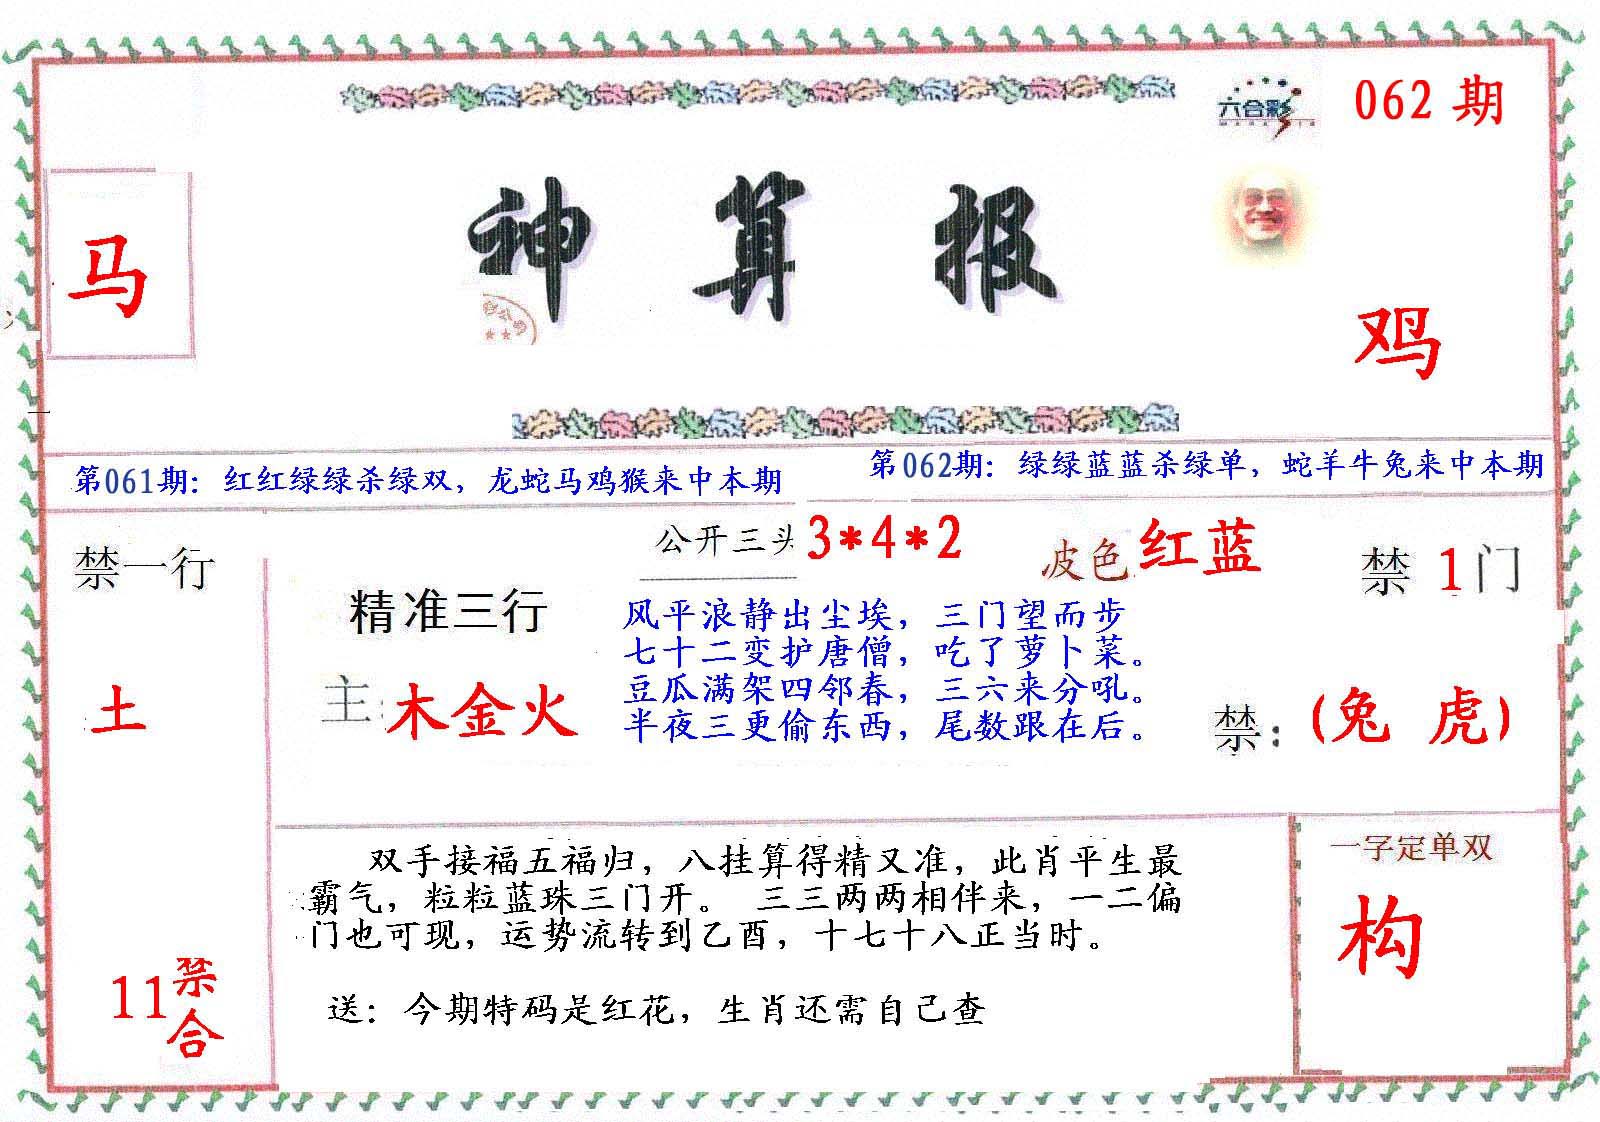 六合彩
062 期
神算报
马
鸡
第061期：红红绿绿杀绿双，龙蛇马鸡猴来中本期
第062期：绿绿蓝蓝杀绿单，蛇羊牛兔来中本期
禁一行
土
11禁合
精准三行
主:木金火
公开三头3*4*2
波色:红蓝
禁 1门
风平浪静出尘埃，三门望而步
七十二变护唐僧，吃了萝卜菜。
豆瓜满架四邻春，三六来分吼。
半夜三更偷东西，尾数跟在后。
禁:(兔 虎)
双手接福五福归，八挂算得精又准，此肖平生最
霸气，粒粒蓝珠三门开。 三三两两相伴来，一二偏
门也可现，运势流转到乙酉，十七十八正当时。
送：今期特码是红花，生肖还需自己查
一字定单双
构